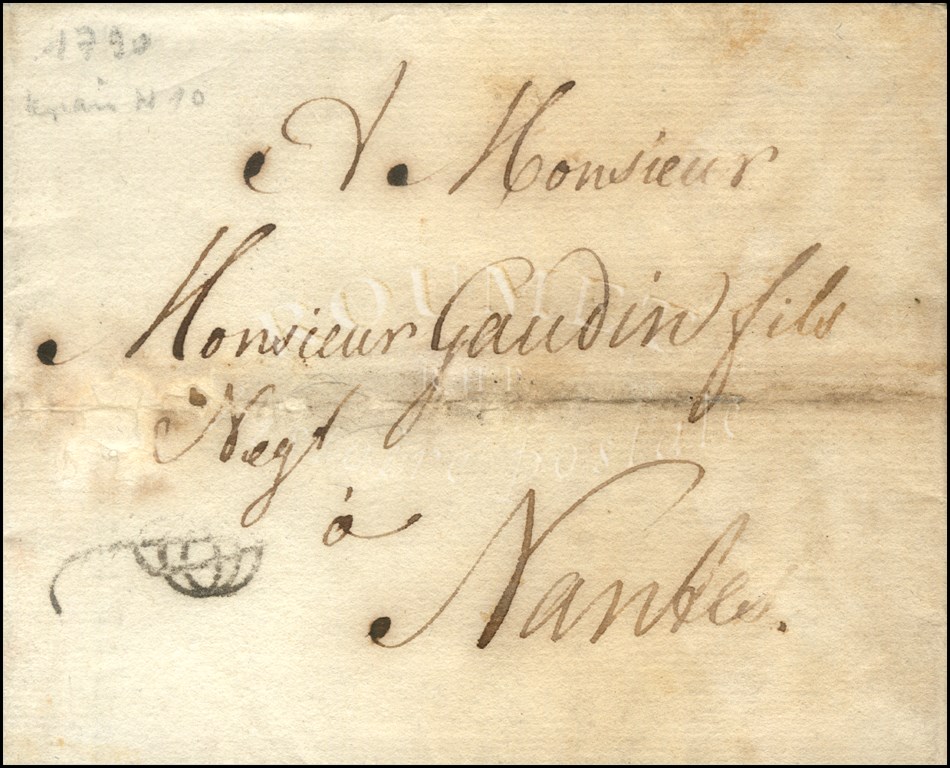 1790
N 10
A Monsieur
Monsieur Gaudin fils
Negt
à
Nantes.
ROUMET